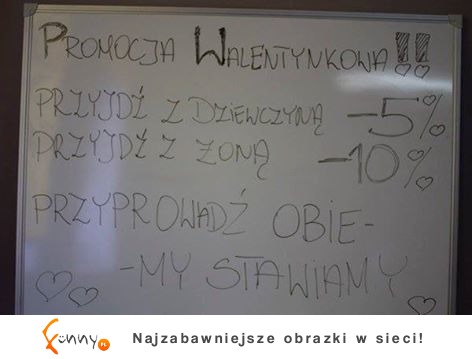 PROMOCJA WALENTYNKOWA!!
PRZYJDŹ Z DZIEWCZYNĄ -5%
PRZYJDŹ Z ŻONĄ -10%
PRZYPROWADŹ OBIE-
-MY STAWIAMY
funny.PL Najzabawniejsze obrazki w sieci!